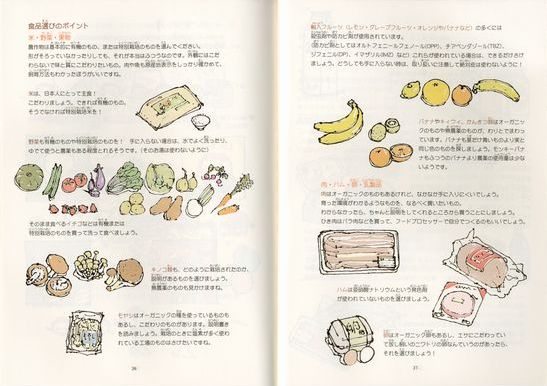 食品選びのポイント
米・野菜・果物
農作物は基本的に有機のもの、または特別栽培のものを選んでください。
形がそろっていなかったりしても、それが本当はふつうなのです。外観にはこだ
わらないで味と質にこだわりたいもの。肉や魚も原産地表示をしっかり確かめて、
飼育方法もわかったほうがいいですね。
米は、日本人にとって主食!
こだわりましょう。できれば有機のもの、
そうでなければ特別栽培米を!
野菜も有機のものや特別栽培のものを! 手に入らない場合は、水でよく洗ったり、
ゆでて使うと農薬もある程度とれるそうです。(そのお湯は使わないように)
そのまま食べるイチゴなどは有機または
特別栽培のものを買って洗って食べましょう。
キノコ類も、どのように栽培されたのか、
説明があるものを選びましょう。
無農薬のものも見かけますね。
モヤシはオーガニックの種を使っているものも
あるし、こだわりのものがあります。説明書き
を読みましょう。栽培のときに塩素が多く使わ
れている工場のものはさけたいですね。
36
輸入フルーツ(レモン・グレープフルーツ・オレンジやバナナなど)の多くには
殺虫剤や防カビ剤が使用されています。
(防カビ剤としてはオルトフェニールフェノール(OPP)、チアベンダゾール(TBZ)、
ジフェニル(DP)、イマザリル(IMZ)など)これらが使われている場合は、できるだけさけ
ましょう。どうしても手に入らない時は、取り扱いに注意して絶対皮は使わないように!
バナナやキィウィ、かんきつ類はオーガニ
ックのものや無農薬のものが、わりとでまわっ
ています。バナナも葉だけ青いものより実と
同じ色のものを探しましょう。モンキーバナ
ナもふつうのバナナより農薬の使用量は少な
いようです。
肉・ハム・卵・乳製品
肉はオーガニックのものもあるけれど、なかなか手に入りにくいでしょう。
育った環境がわかるようなものを、なるべく買いたいもの。
わからなかったら、ちゃんと説明をしてくれるところから買うことにしましょう。
ひき肉はバラ肉などを買って、フードプロセッサーで自分でつくるのもいいでしょう。
ハムは亜硝酸ナトリウムという発色剤
が使われていないものを選びましょう。
卵はオーガニック卵もあるし、エサにこだわってい
て放し飼いのニワトリの卵なんていうのがあったら、
それを選びましょう!
37